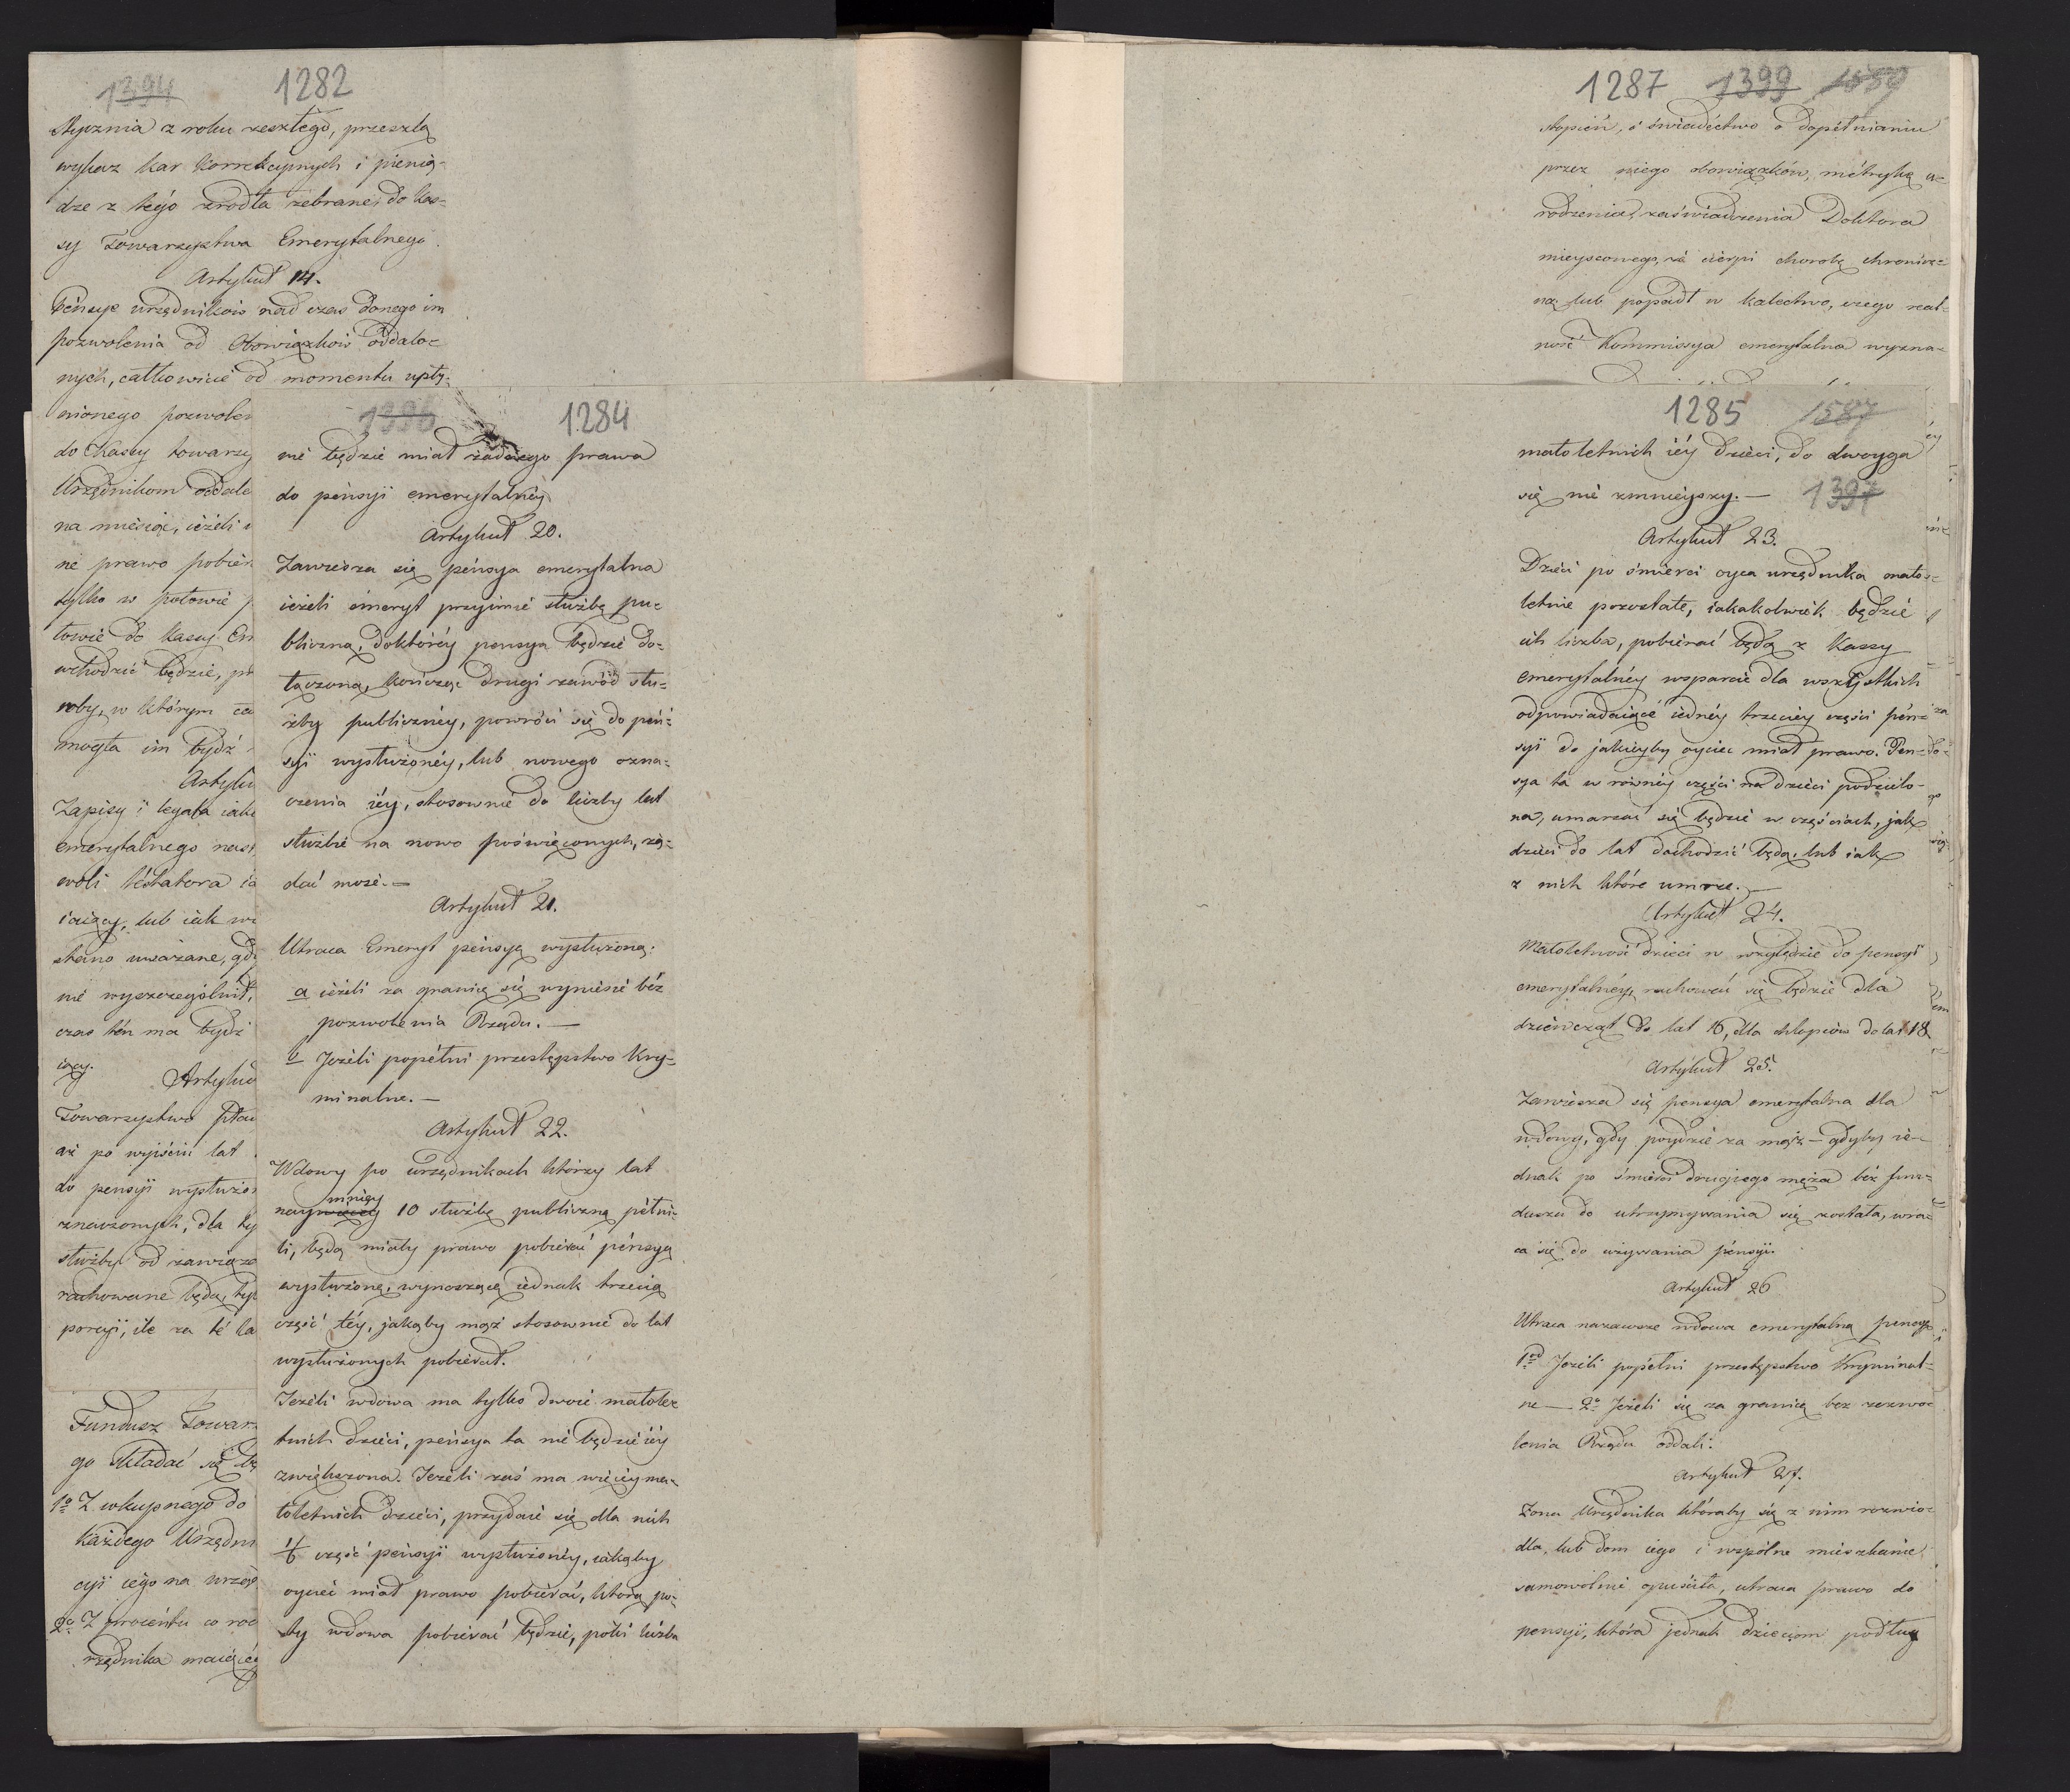 1394 1282
Stycznia z roku zeszłego, przeszłą
wykaz kar korrekcyjnych i pienią-
dze z tego źrodła zebrane, do Kas-
sy Towarzystwa Emerytalnego.
Artykuł 14.
Pensye urzędników nad czas danego im
pozwolenia od Obowiązków oddalo-
nych, całkowicie od momentu upły-
nionego pozwolen
do Kassy towarzy
Urzędnikom oddale
na miesiąc, ieżeli
ne prawo pobier
tylko w połowie
łowie do Kassy Em
wchodzić będzie, pr
roby, w którym
mogła im bydź
Artyku
Zapisy i legata iak
emerytalnego nast
woli Testatora
iaiący, lub iak
stano uważane, gdy
nie wyszczególnił,
czas ten ma bydź
iący. Artykuł
Towarzystwo Płac
aż po wyiściu lat
do pensyi wysłużon
znaczonych, dla ty
służby od zawiąza
rachowane będą, ty
porcyi, ile za te la
Fundusz Towar
go składać się bę
1o Z wkupnego do
każdego Urzędni
cyi iego na urzą
2o Z procentu co roc
rzędnika maiące
1396 1284
nie będzie miał żadnego prawa
do pensyi emerytalnéy
Artykuł 20.
Zawiesza się pensya emerytalna
ieżeli émeryt przyimie służbę pu-
bliczną, do któréy pensya będzie do-
łączona, kończąc drugi zawód słu-
żby publicznéy, powróci się do pen-
syi wysłużonéy, lub nowego ozna-
czenia iéy, stosownie do liczby lat
służbie na nowo poświęconych, żą-
dać może. —
Artykuł 21.
Utraca Emeryt pensyą wysłużoną:
a ieżeli za granicę się wyniesie béz
pozwolenia Rządu. —
b Jeżeli popełni przestępstwo kry-
minalne. —
Artykuł 22.
Wdowy po urzędnikach którzy lat
mniéy
naywięcéy 10 służbę publiczną pełni-
li, będą miały prawo pobierać pensyą
wysłużoną, wynoszącą iednak trzecią
część téy, jakąby mąż stosownie do lat
wysłużonych pobierał.
Jeżeli wdowa ma tylko dwoie małole-
tnich dzieci, pensya ta nie będzie iéy
zwiększona. Jeżeli zaś ma więcéy ma-
łoletnich dzieci, przydaie się dla nich
1/6 część pensyi wysłużonéy, iakąby
oyciec miał prawo pobierać, którą po-
ty wdowa pobierać będzie, póki liczba
1287 1399 1589
stopień, i świadectwo o dopełnianiu
przez niego obowiązków, metrykę u-
rodzenia, zaświadczenia Doktora
mieyscowego, że cierpi chorobę chronicz-
ną lub popadł w kalectwo, czego real-
ność Kommissya emerytalna wyzna-
1285 1587
małoletnich iéy dzieci, do dwoyga
się nie zmnieyszy. — 1397
Artykuł 23.
Dzieci po śmierci oyca urzędnika mało-
letnie pozostałe, iakakolwiek będzie
ich liczba, pobierać będą z Kassy
emerytalnéy wsparcie dla wszystkich
odpowiadaiące iednéy trzeciéy części pen-
syi do jakieyby oyciec miał prawo. Pen-
sya ta w równéy części na dzieci podzielo-
na, umarzać się będzie w częściach, jak
dzieci do lat dochodzić będą, lub iak
z nich które umrze. —
Artykuł 24.
Małoletność dzieci w względzie do pensyi
emerytalnéy, rachować się będzie dla
dziewcząt do lat 16, dla chłopców do lat 18
Artykuł 25.
Zawiesza się pensya emerytalna dla
wdowy, gdy poydzie za mąż — gdyby ie-
dnak po śmierci drugiego męża béz fun-
duszu do utrzymywania się została, wra-
ca się do używania pensyi.
Artykuł 26
Utraca nazawsze wdowa emerytalną pensyą
1od Jeżeli popełni przestępstwo kryminal-
ne — 2o Jeżeli się za granicę bez zezwo-
lenia Rządu oddali.
Artykuł 27.
Żona Urzędnika któraby się z nim rozwio-
dła, lub dom iego i wspólne mieszkanie
samowolnie opuściła, utraca prawo do
pensyi, która jednak dzieciom podług